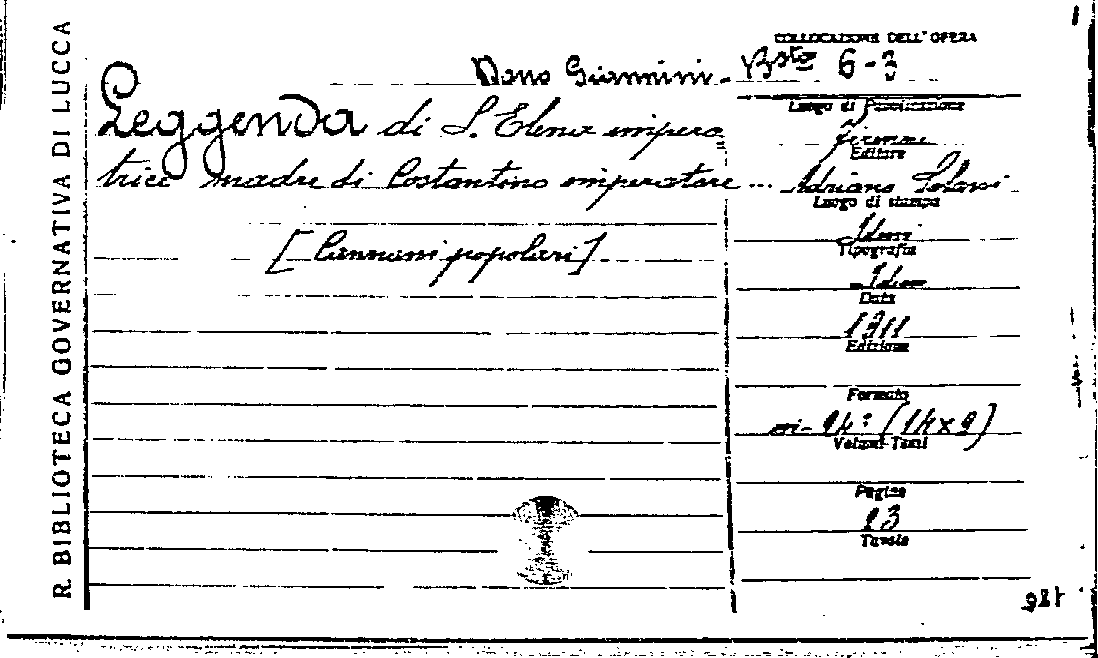 R. BIBLIOTECA GOVERNATIVA DI LUCCA
COLLOCAZIONE DELL' OPERA
Dono Giannini - Bsta 6-3
Leggenda di S. Elena impera
trice madre di Costantino imperatore ...
[Canzoni popolari]
Luogo di Pubblicazione
Firenze
Editore
Adriano Salani
Luogo di stampa
Idem
Tipografia
Idem
Data
1911
Edizione
Formato
in-24º (14x9)
Volumi-Tomi
Pagine
23
Tavole